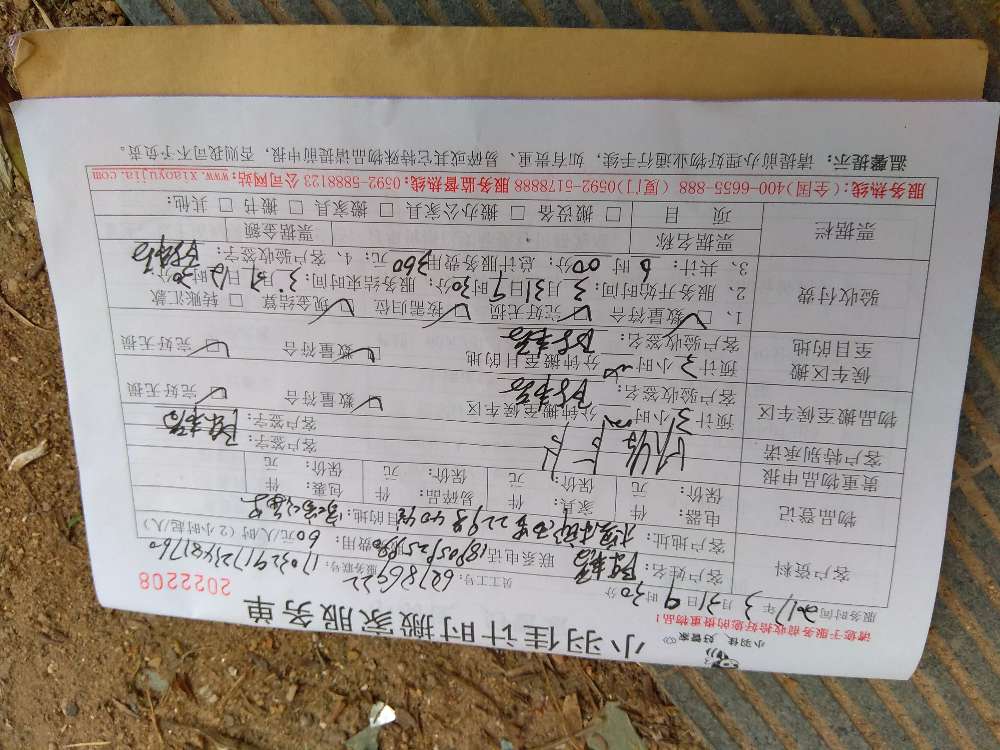 小羽佳 好管家
小羽佳计时搬家服务单
请您于服务前收拾好您的贵重物品!
2022208
服务时间 2017年3月31日9时30分 员工工号: 服务联号:
客户资料 客户姓名: 联系电话 费用: 60元/人/时(2小时起人)
客户地址: 目的地:
物品登记 电器: 件 家具: 件 易碎品: 件 包裹: 件
保价: 元 保价: 元 保价: 元 保价: 元
贵重物品申报 客户签字:
客户特别承诺 客户签字:
物品搬至候车区 预计3小时 分钟搬至候车区 数量符合 完好无损
客户验收签名:
候车区搬至目的地 预计3小时 分钟搬至目的地 数量符合 完好无损
客户验收签名:
验收付费 1、数量符合 完好无损 按需归位 现金结算 转账汇款
2、服务开始时间:3月31日9时30分; 服务结束时间:3月31日 时30分
3、共计:6时00分; 总计服务费用360元; 4、客户验收签字:
票据栏 票据名称 票据金额
项目 搬设备 搬办公家具 搬家具 搬书 其他:
服务热线:(全国)400-6655-888 (厦门)0592-5178888 服务监督热线:0592-5888123 公司网站:www.xiaoyujia.com
温馨提示:请提前办理好物业通行手续,如有贵重、易碎或其它特殊物品请提前申报,否则我司不予负责。